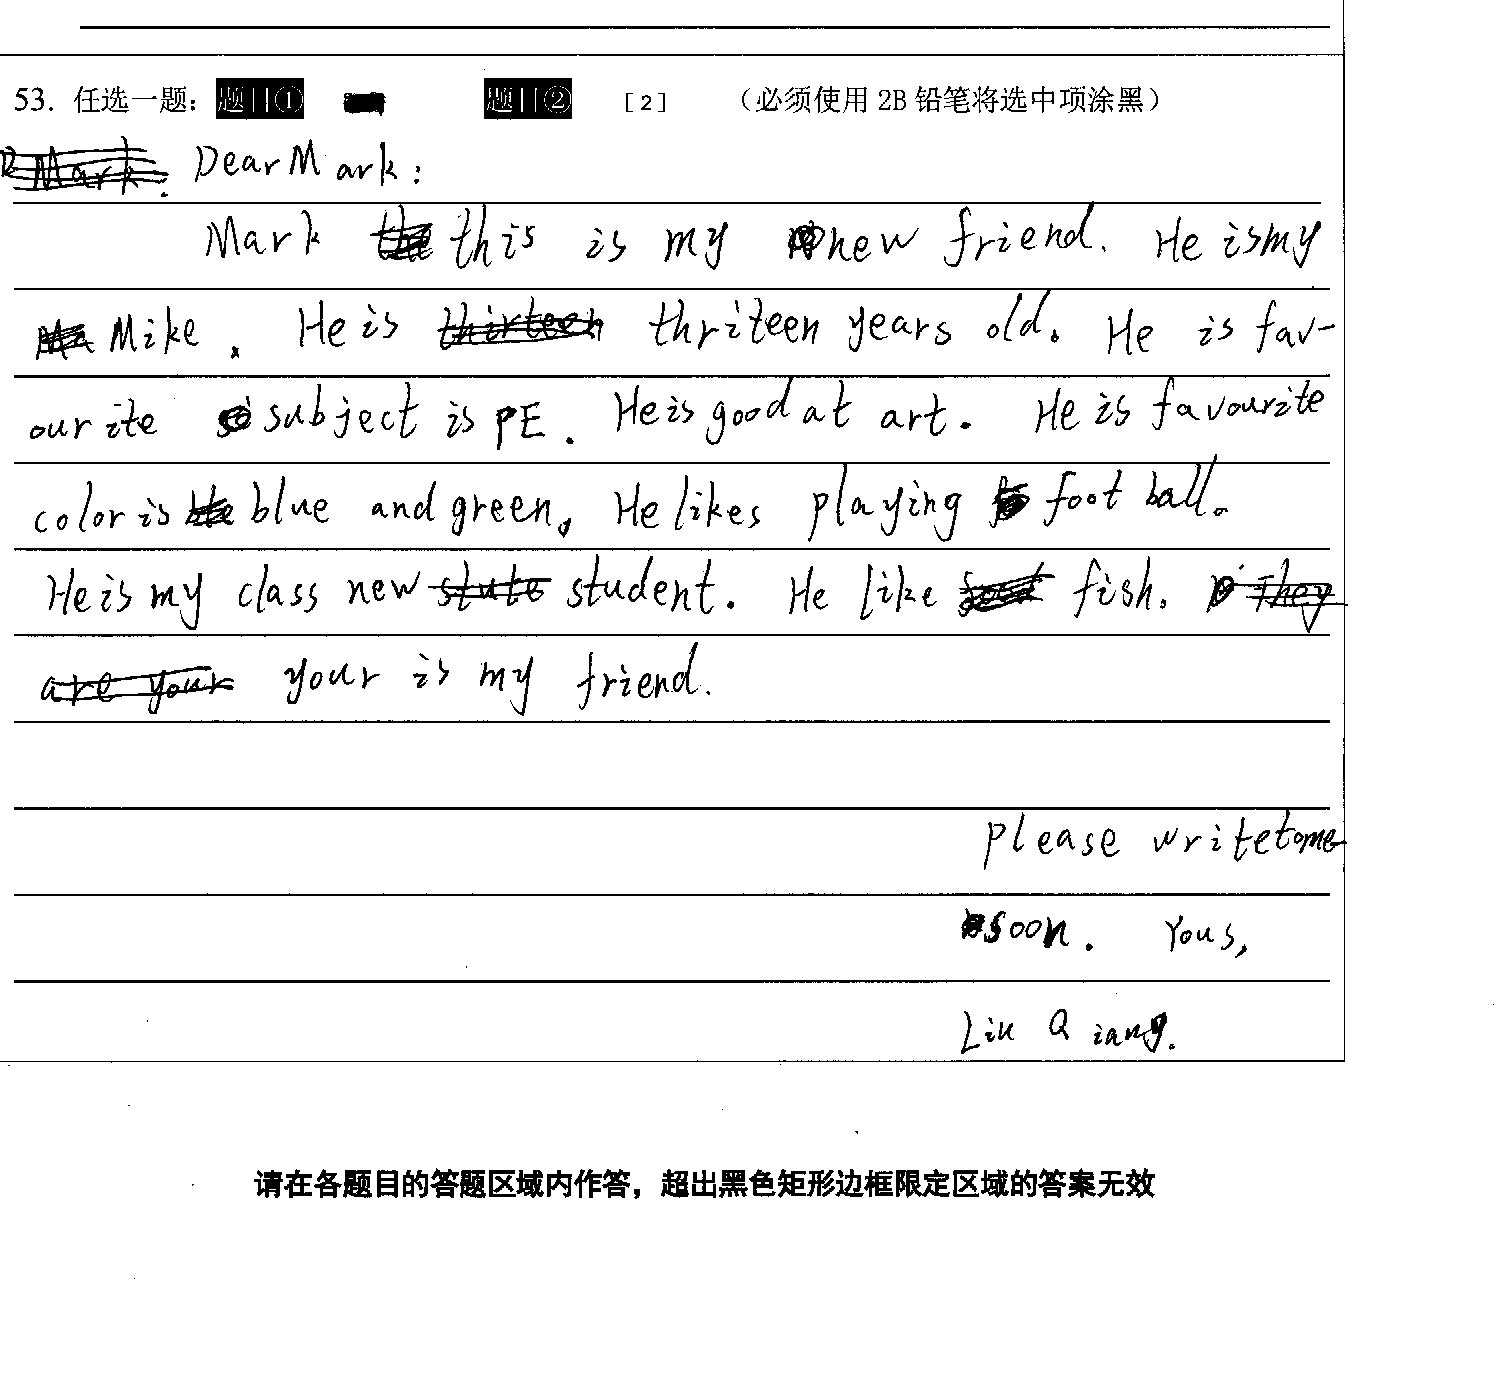 53. 任选一题: 题目① 题目② [2] (必须使用 2B 铅笔将选中项涂黑)
Mark. Dear Mark:
Mark this is my new friend. He is my
Mike. He is thirteen thriteen years old. He is fav-
ourite subject is PE. He is good at art. He is favourite
color is blue and green. He likes playing football.
He is my class new stute student. He like fish. They
are your your is my friend.
please write to me
soon. Yous,
Liu Qiang.
请在各题目的答题区域内作答，超出黑色矩形边框限定区域的答案无效